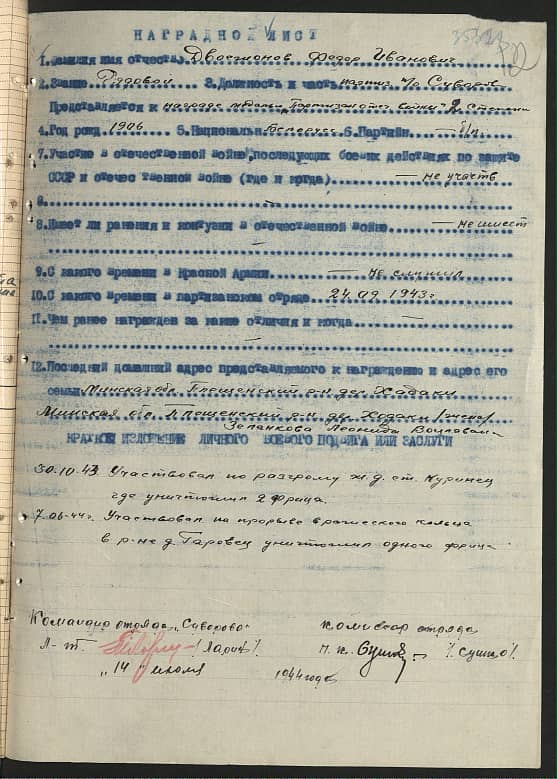 НАГРАДНОЙ ЛИСТ
1. Фамилия имя отчество Федор Иванович
2. Звание Рядовой 3. Должность и часть п/о Суворова
Представляется к награде медаль "Партизан отеч. войны" 2 степени
4. Год рожд. 1906 5. Национальн. Белорус 6. Партийн. — б/п
7. Участие в отечественной войне, последующих боевых действиях по защите
СССР и отечественной войне (где и когда) — не участв
8. —
8. Имеет ли ранения и контузии в отечественной войне — не имеет
—
9. С какого времени в Красной Армии — не служил
10. С какого времени в партизанском отряде 24.09.1943 г
11. Чем ранее награжден за какие отличия и когда —
—
12. Последний домашний адрес представляемого к награждению и адрес его
семьи Минская обл. Плещенский р-н дер. Ходаки
Минская обл. Плещенский р-н дер. Ходаки /жена/
Зеланкова Леонида
КРАТКОЕ ИЗЛОЖЕНИЕ ЛИЧНОГО БОЕВОГО ПОДВИГА ИЛИ ЗАСЛУГИ
30.10.43 Участвовал по разгрому ж.д. ст. Куринец
где уничтожил 2 фрица.
7.06.44 г. Участвовал по прорыве вражеского кольца
в р-не д. уничтожил одного фрица
Командир отряда "Суворова" Комиссар отряда
Л-т /Сушко/.
"14" июля 1944 года